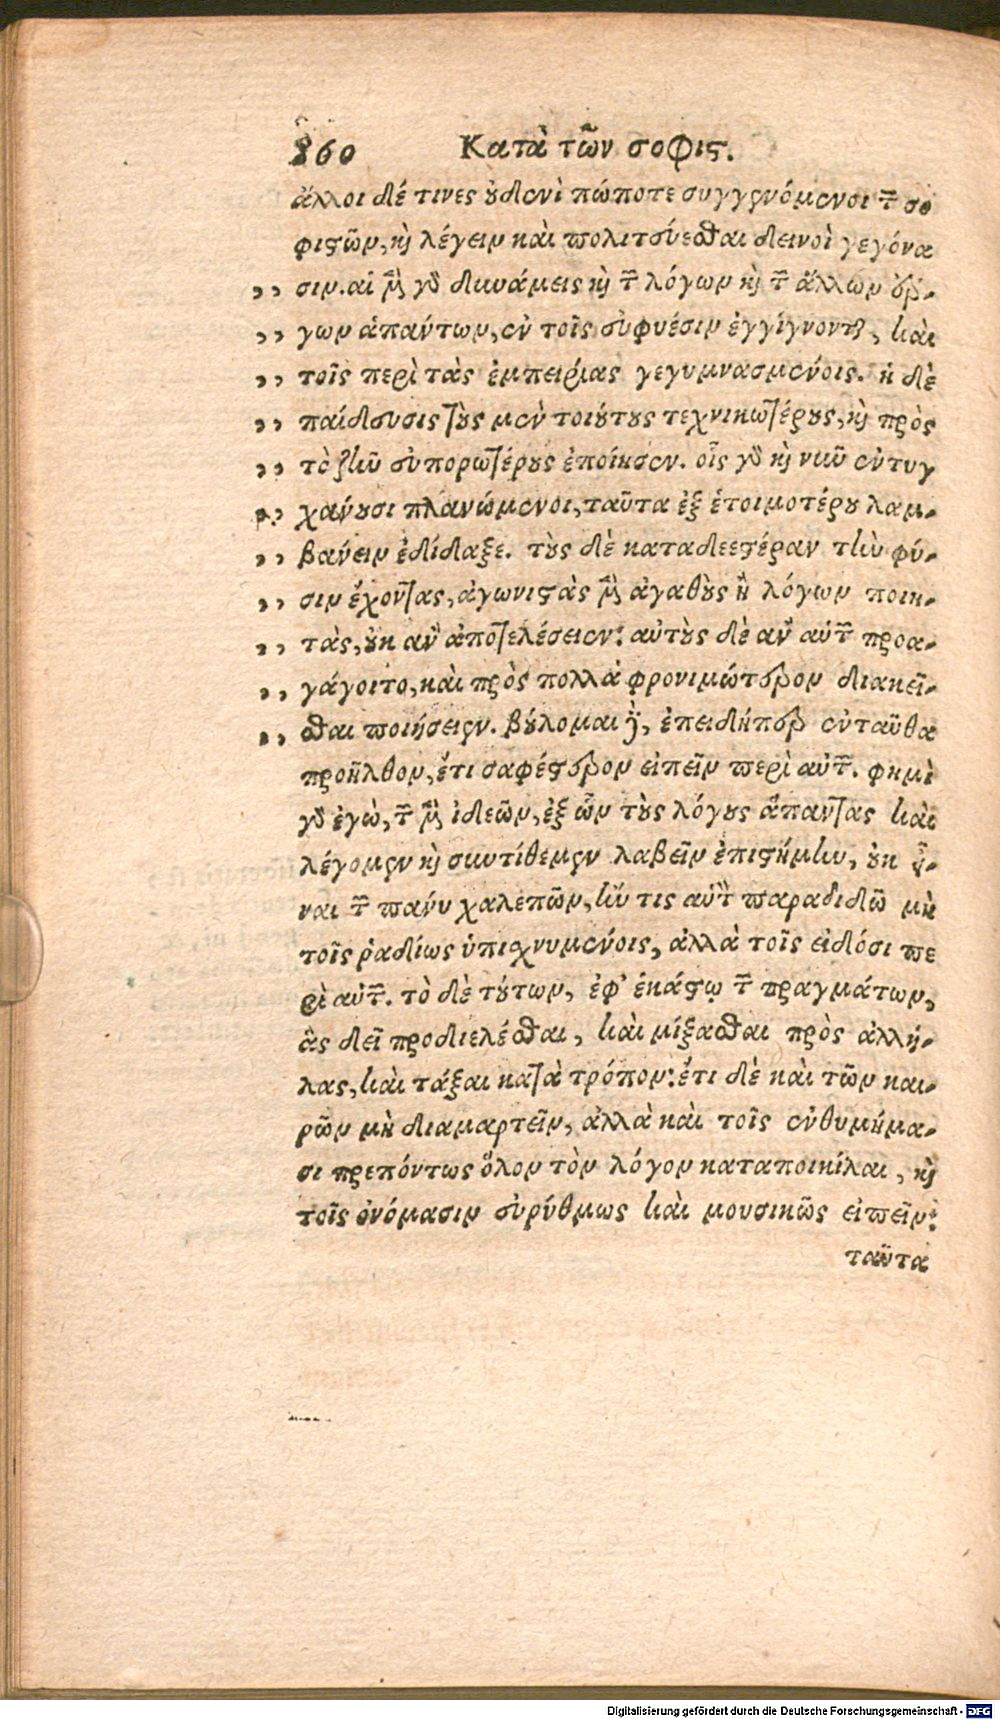 860 Κατὰ τῶν σοφις.
ἄλλοι δέ τινες οὐδενὶ πώποτε συγγενόμενοι τῶν σο
φιστῶν, καὶ λέγειν καὶ πολιτεύεσθαι δεινοὶ γεγόνα
,, σιν. αἱ μὲν γὰρ δυνάμεις καὶ τῶν λόγων καὶ τῶν ἄλλων ἔρ-
,, γων ἁπάντων, ἐν τοῖς εὐφυέσιν ἐγγίγνονται, καὶ
,, τοῖς περὶ τὰς ἐμπειρίας γεγυμνασμένοις. ἡ δὲ
,, παίδευσις τοὺς μὲν τοιούτους τεχνικωτέρους, καὶ πρὸς
,, τὸ ζῆν εὐπορωτέρους ἐποίησεν. οἷς γὰρ καὶ νῦν ἐντυγ
,, χάνουσι πλανώμενοι, ταῦτα ἐξ ἑτοιμοτέρου λαμ-
,, βάνειν ἐδίδαξε. τοὺς δὲ καταδεεστέραν τὴν φύ-
,, σιν ἔχοντας, ἀγωνιστὰς μὲν ἀγαθοὺς ἢ λόγων ποιη-
,, τὰς, οὐκ ἂν ἀποτελέσειεν: αὐτοὺς δὲ ἂν αὑτῶν προα-
,, γάγοιτο, καὶ πρὸς πολλὰ φρονιμώτερον διακεῖ-
,, σθαι ποιήσειεν. βούλομαι δὲ, ἐπειδήπερ ἐνταῦθα
προῆλθον, ἔτι σαφέστερον εἰπεῖν περὶ αὐτῶν. φημὶ
γὰρ ἐγὼ, τῶν μὲν ἰδεῶν, ἐξ ὧν τοὺς λόγους ἅπαντας καὶ
λέγομεν καὶ συντίθεμεν λαβεῖν ἐπιστήμην, οὐκ εἶ-
ναι τῶν πάνυ χαλεπῶν, ἤν τις αὑτὸν παραδιδῶ μὴ
τοῖς ῥᾳδίως ὑπισχνυμένοις, ἀλλὰ τοῖς εἰδόσι πε
ρὶ αὐτῶν. τὸ δὲ τούτων, ἐφ' ἑκάστῳ τῶν πραγμάτων,
ἃς δεῖ προδιελέσθαι, καὶ μίξασθαι πρὸς ἀλλή-
λας, καὶ τάξαι κατὰ τρόπον: ἔτι δὲ καὶ τῶν και-
ρῶν μὴ διαμαρτεῖν, ἀλλὰ καὶ τοῖς ἐνθυμήμα-
σι πρεπόντως ὅλον τὸν λόγον καταποικίλαι, καὶ
τοῖς ὀνόμασιν εὐρύθμως καὶ μουσικῶς εἰπεῖν:
ταῦτα
Digitalisierung gefördert durch die Deutsche Forschungsgemeinschaft - DFG